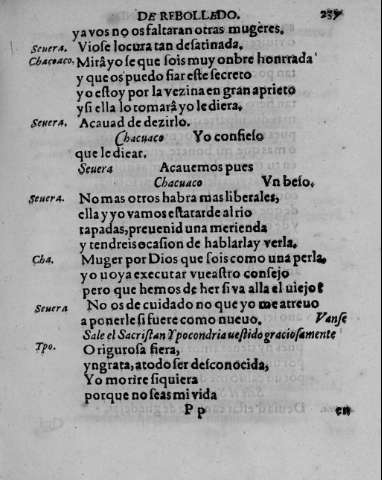 DE REBOLLEDO. 237
ya vos no os faltaran otras mugeres.
Seuera. Viose locura tan desatinada.
Chacoaco. Mirâ yo se que sois muy onbre honrrada
y que os puedo fiar este secreto
yo estoy por la vezina en gran aprieto
y si ella lo tomarâ yo le diera.
Seuera. Acauad de dezirlo.
Chacuaco Yo confieso
que le diear.
Seuera Acauemos pues
Chacuaco Vn beso.
Seuera. No mas otros habra mas liberales,
ella y yo vamos estatarde al rio
tapadas, preuenid una merienda
y tendreis ocasion de hablarla y verla.
Cha. Muger por Dios que sois como una perla,
yo uoy a executar vuestro consejo
pero que hemos de her si va alla el uiejo?
Seuera No os de cuidado no que yo me atreuo
a ponerle si fuere como nueuo. Vanse
Sale el Sacristan Ypocondria uestido graciosamente
Ypo. O rigurosa fiera,
yngrata, a todo ser desconocida,
Yo morire siquiera
porque no seas mi vida
P p en